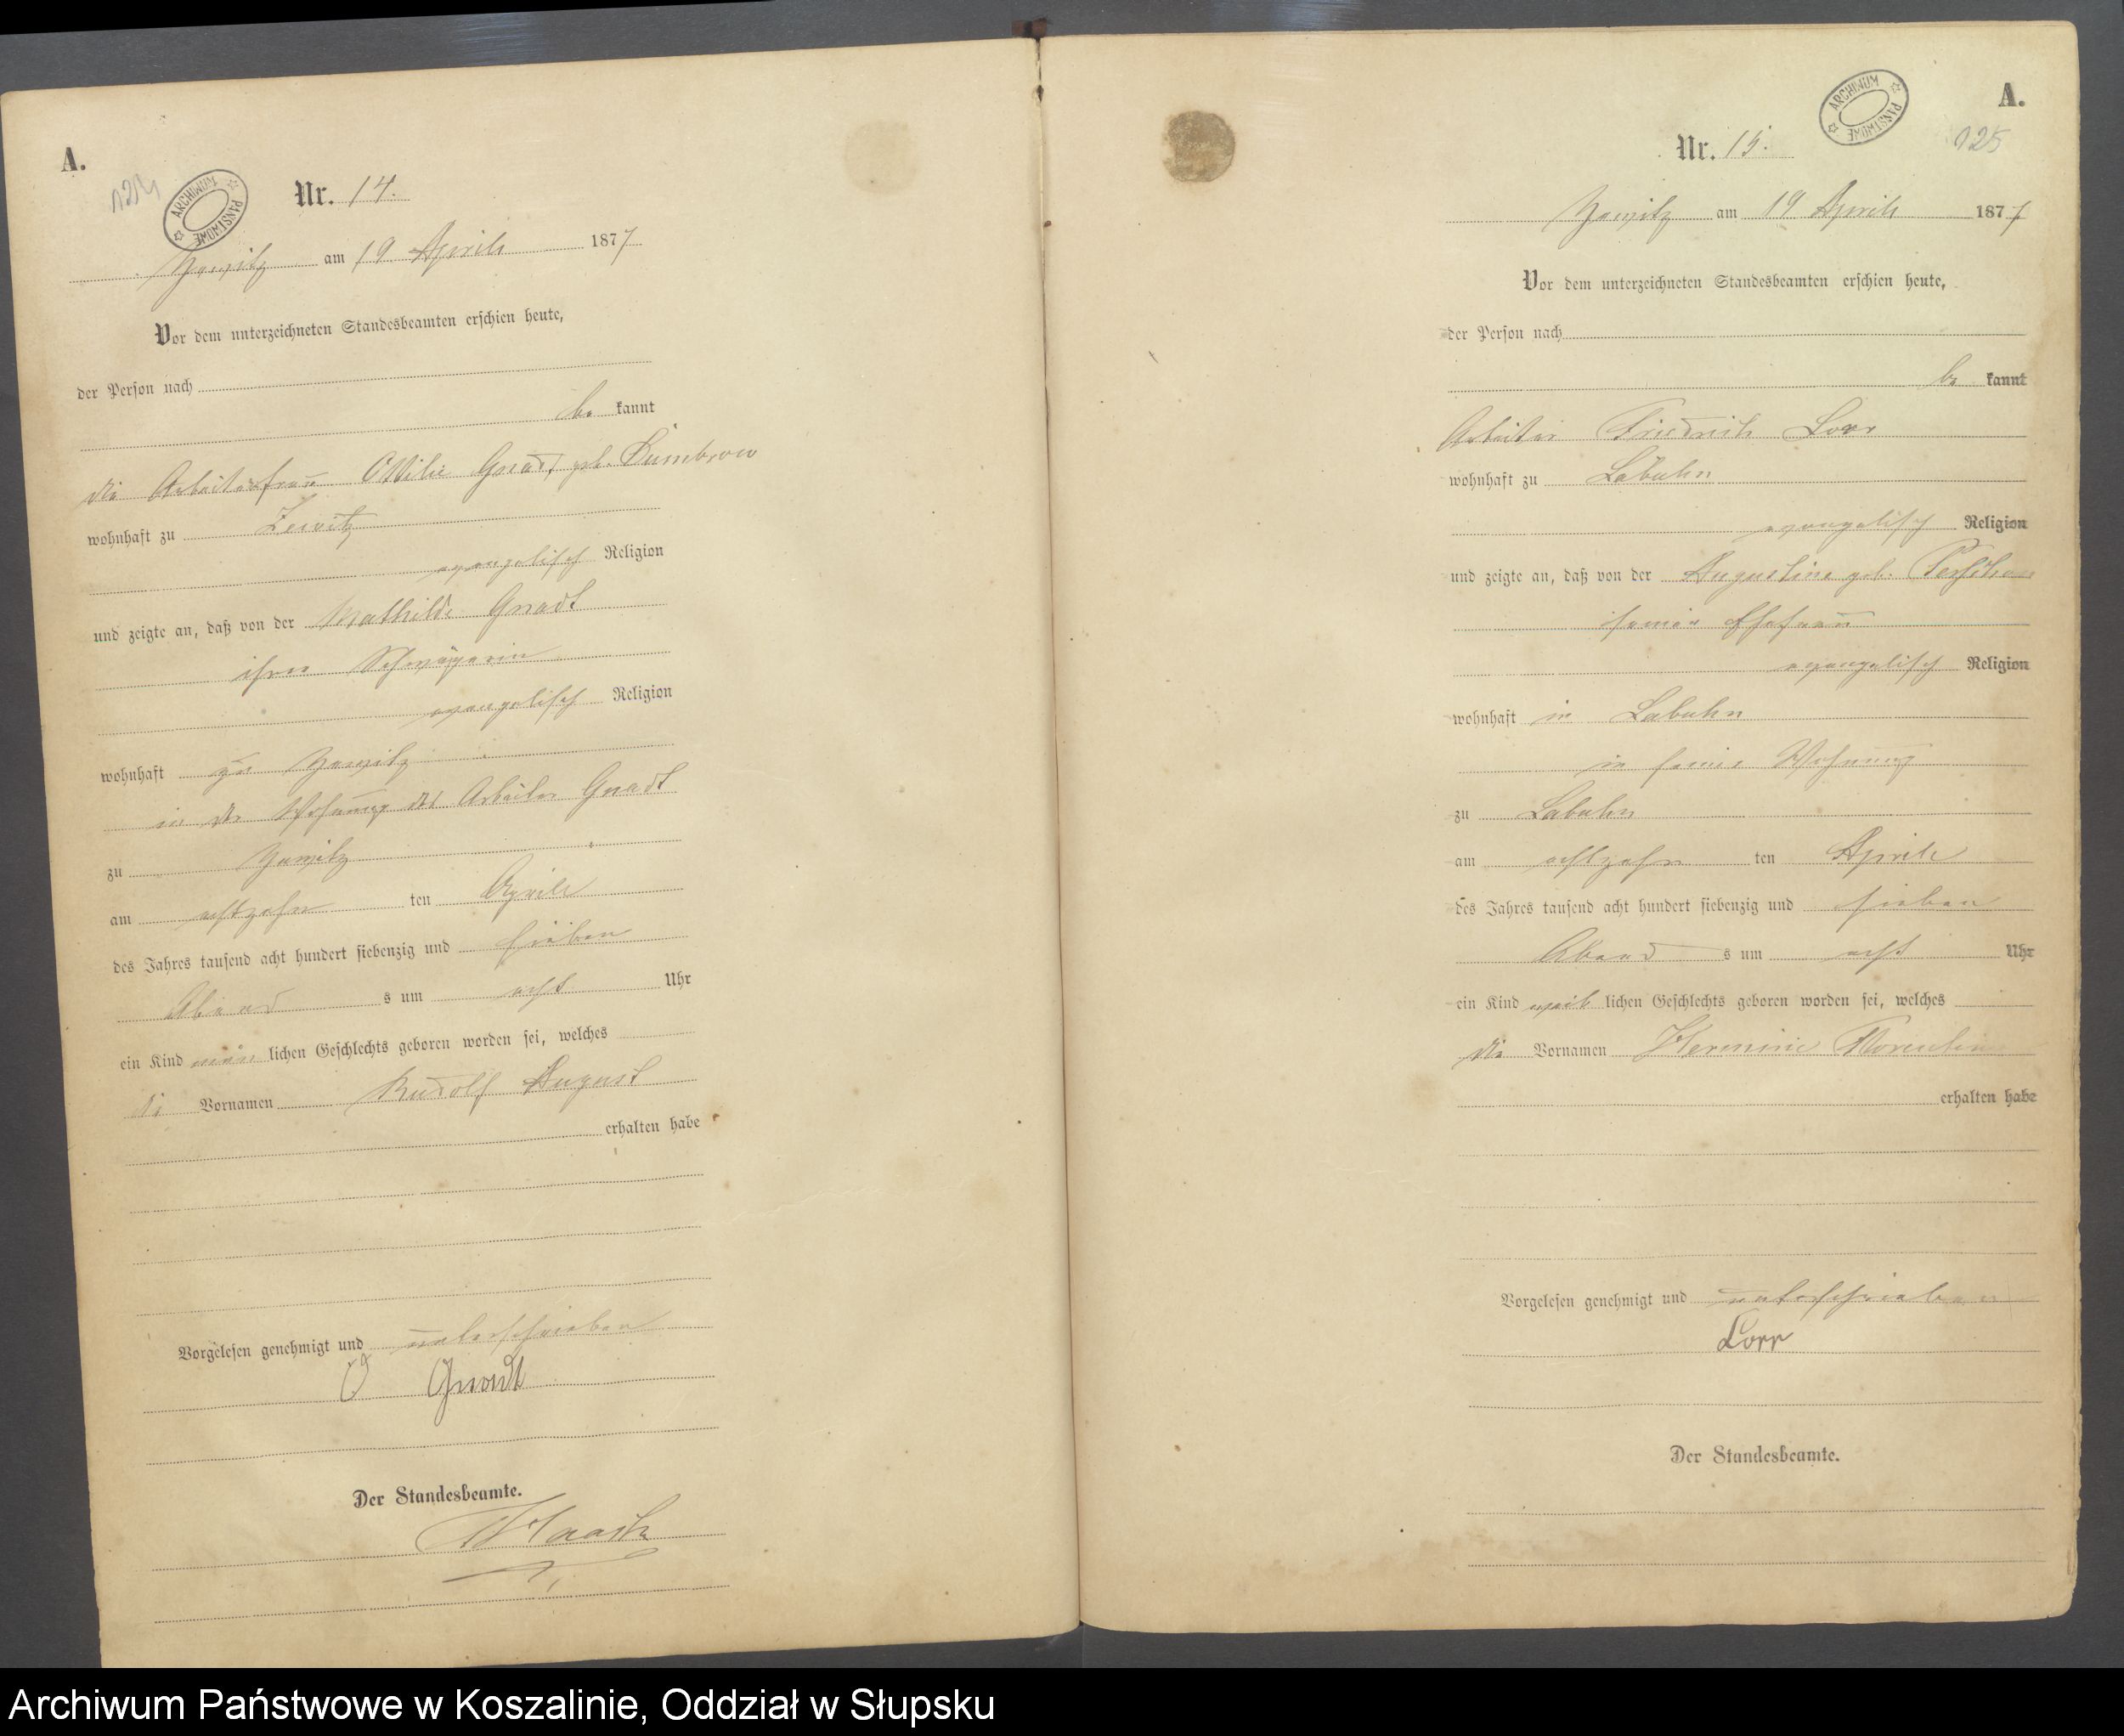 A.
124
ARCHIWUM PAŃSTWOWE
Nr. 14.
Zewitz am 19 Aprile 1877
Vor dem unterzeichneten Standesbeamten erschien heute,
der Person nach
be kannt
die Arbeiterfrau Ottilie Gnadt geb. Dümbrow
wohnhaft zu Zewitz
evangelisch Religion
und zeigte an, daß von der Mathilde Gnadt
ihrer Schwägerin
evangelisch Religion
wohnhaft zu Zewitz
in der Wohnung des Arbeiter Gnadt
zu Zewitz
am achtzehn ten Aprile
des Jahres tausend acht hundert siebenzig und sieben
Abend s um acht Uhr
ein Kind män lichen Geschlechts geboren worden sei, welches
die Vornamen Rudolf August
erhalten habe
Vorgelesen genehmigt und unterschrieben
O Gnadt
Der Standesbeamte.
A.
ARCHIWUM PAŃSTWOWE
125
Nr. 15.
Zewitz am 19 Aprile 1877
Vor dem unterzeichneten Standesbeamten erschien heute,
der Person nach
be kannt
Arbeiter Friedrich Lorr
wohnhaft zu Labuhn
evangelisch Religion
und zeigte an, daß von der Augustine geb.
seiner Ehefrau
evangelisch Religion
wohnhaft in Labuhn
in seine Wohnung
zu Labuhn
am achtzehn ten Aprile
des Jahres tausend acht hundert siebenzig und sieben
Abend s um acht Uhr
ein Kind weib lichen Geschlechts geboren worden sei, welches
die Vornamen Hermine Florentine
erhalten habe
Vorgelesen genehmigt und unterschrieben
Lorr
Der Standesbeamte.
Archiwum Państwowe w Koszalinie, Oddział w Słupsku